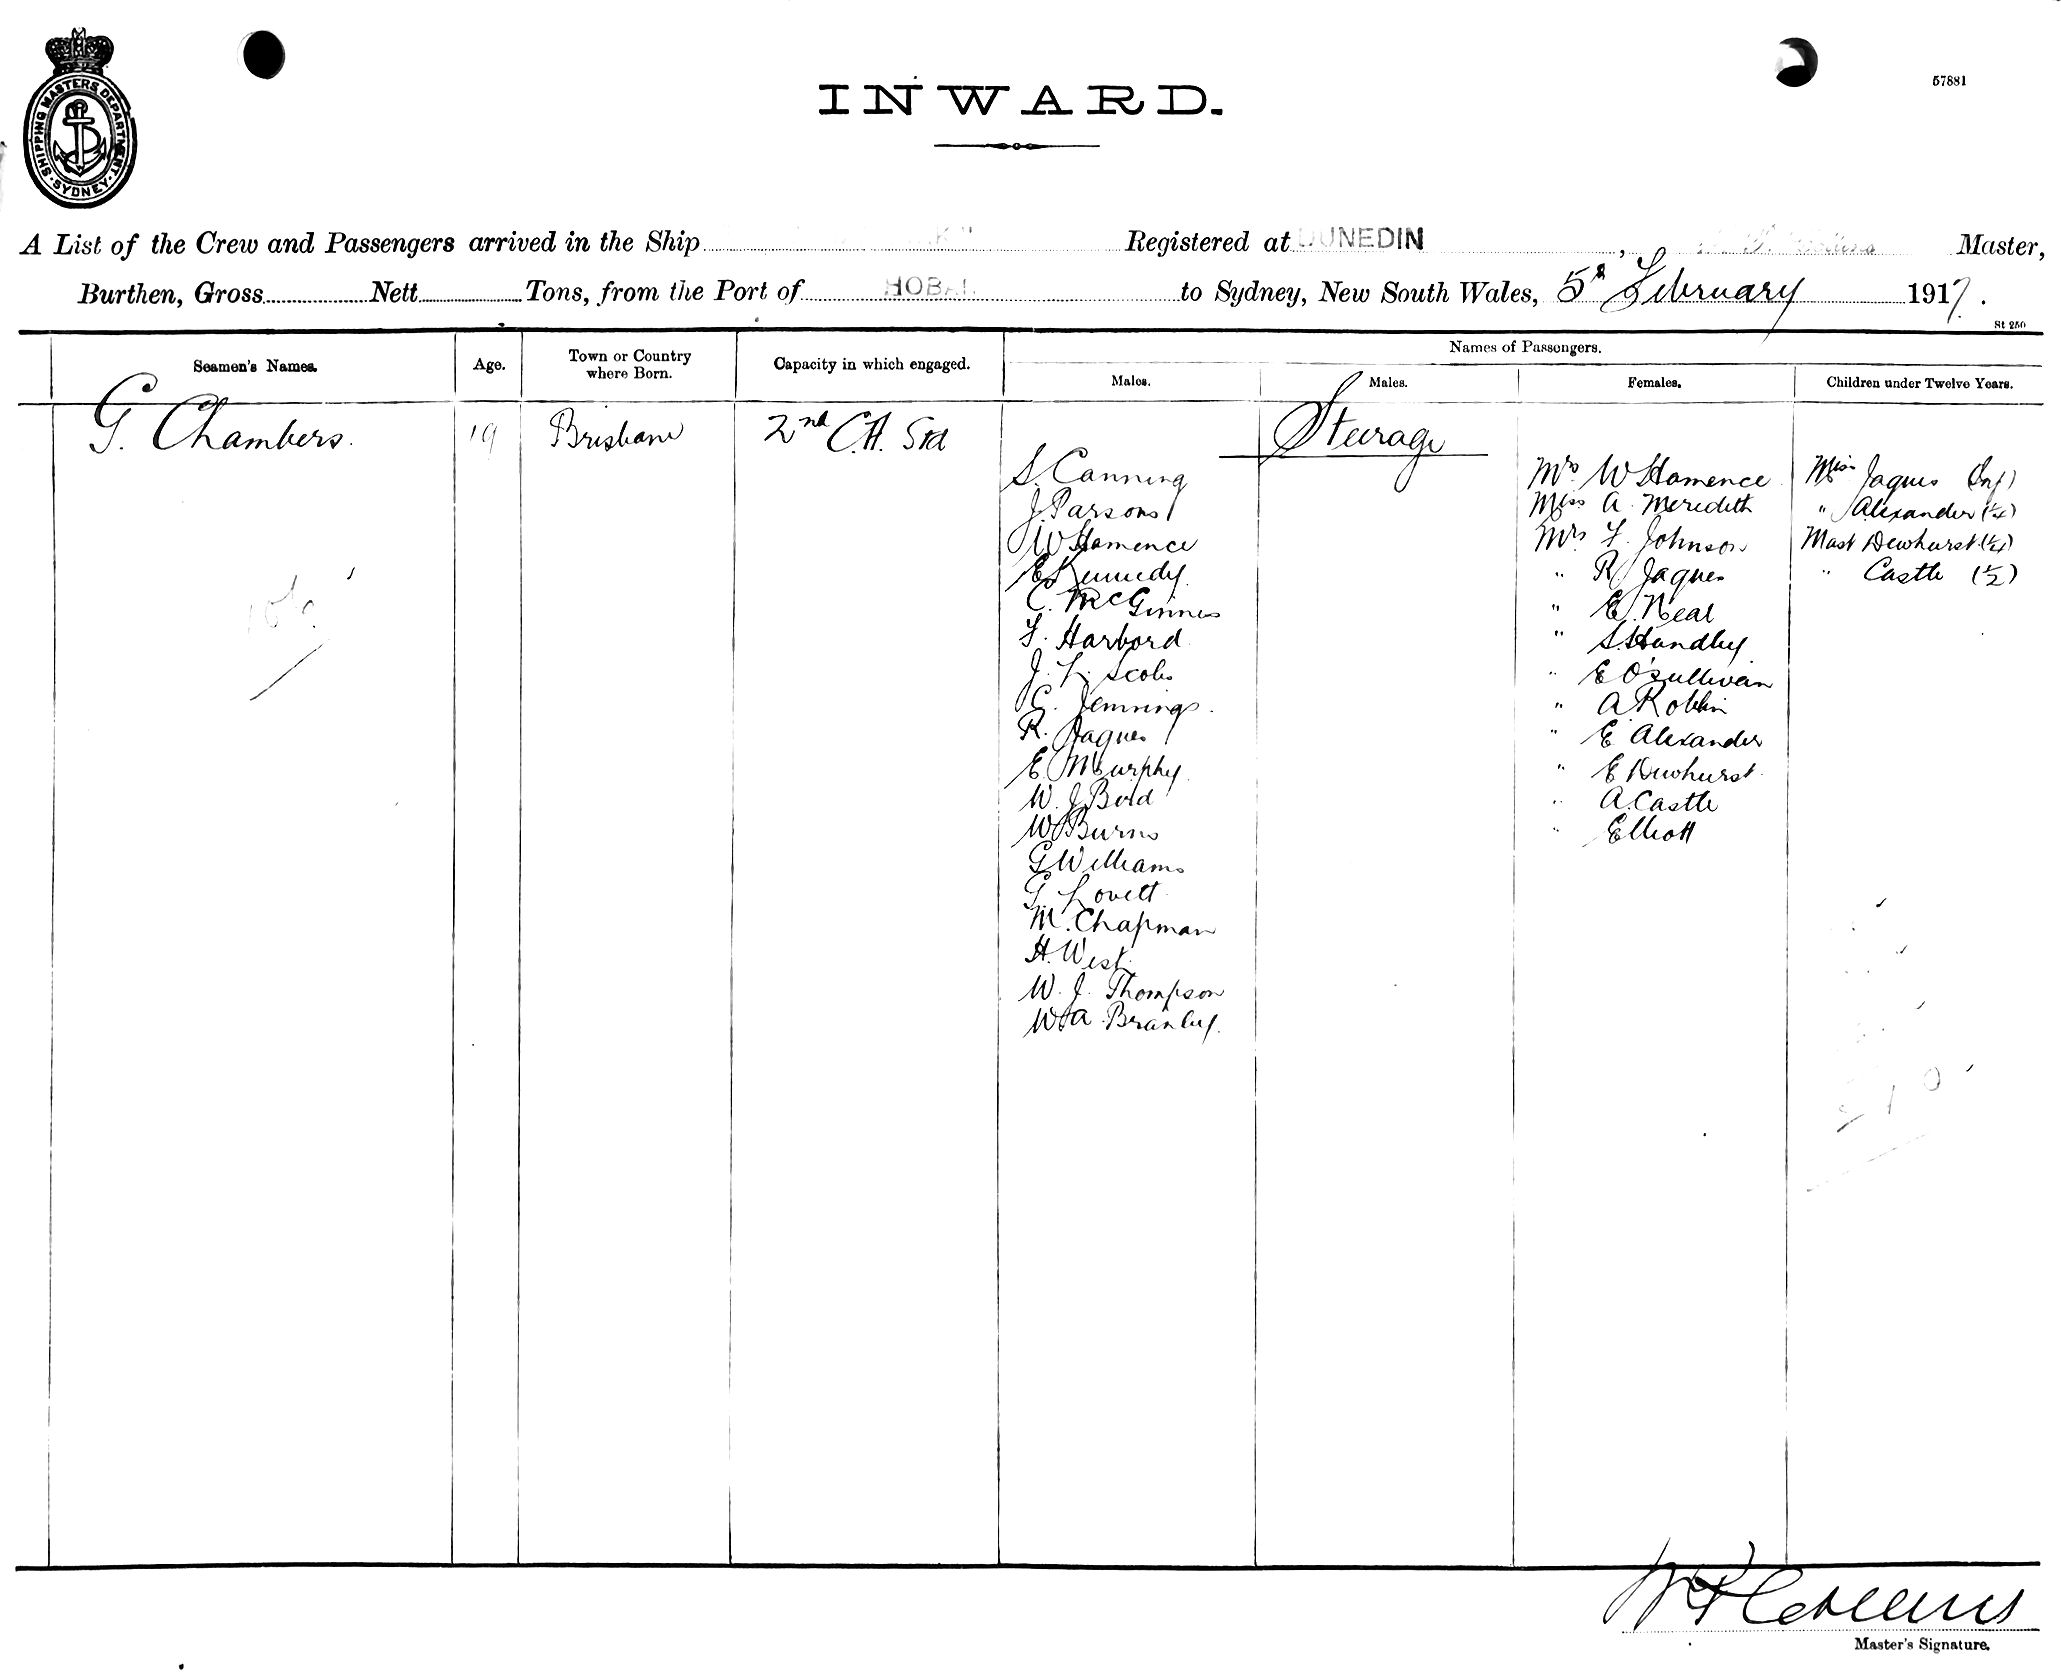 SHIPPING MASTERS DEPARTMENT SYDNEY
57881
INWARD.
A List of the Crew and Passengers arrived in the Ship Registered at DUNEDIN, Master,
Burthen, Gross Nett Tons, from the Port of to Sydney, New South Wales, 5th February 1917.
St 250
Seamen's Names. Age. Town or Country where Born. Capacity in which engaged. Names of Passengers.
Males. Males. Females. Children under Twelve Years.
G. Chambers. 19 Brisbane 2nd C.H. Std
Steerage
S. Canning Mrs W Hamence Miss Jaques (Inf)
J. Parsons Miss A. Meredith " Alexander (1/4)
W Hamence Mrs F. Johnson Mast Dewhurst (1/4)
E Kennedy " R Jaques " Castle (1/2)
C. McGinnes " E. Neal
F. Harbord " S. Handley
J. L. " E O'Sullivan
C. Jennings. " A Roblin
R. Jaques " E Alexander
E. Murphy " E Dewhurst
W. J. " A. Castle
W Burns " Elliott
G Williams
G. Lovett
M. Chapman
H. West.
W. J. Thompson
W A
Master's Signature.